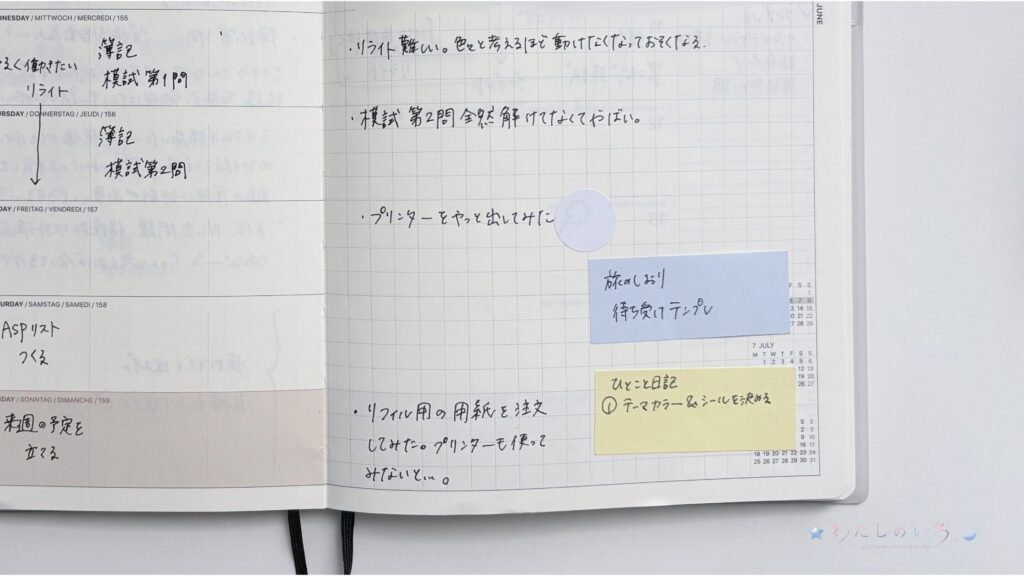 DNESDAY / MITTWOCH / MERCREDI / 155
簿記
模試 第1問
く働きたい
リライト
URSDAY / DONNERSTAG / JEUDI / 156
簿記
模試第2問
DAY / FREITAG / VENDREDI / 157
URDAY / SAMSTAG / SAMEDI / 158
ASPリスト
つくる
DAY / SONNTAG / DIMANCHE / 159
来週の予定を
立てる
JUNE
・リライト難しい。色々と考えるほど動けなくなっておそくなる.
・模試 第2問全然解けてなくてやばい。
・プリンターをやっと出してみた
旅のしおり
待ち受けテンプレ
7 JULY
M T W T F S S
ひとこと日記
① テーマカラー&シールを決める
・リフィル用の用紙を注文
してみた。プリンターも使って
みないと…。
18 19 20 21 22 23 24
25 26 27 28 29 30 31
わたしのいろ